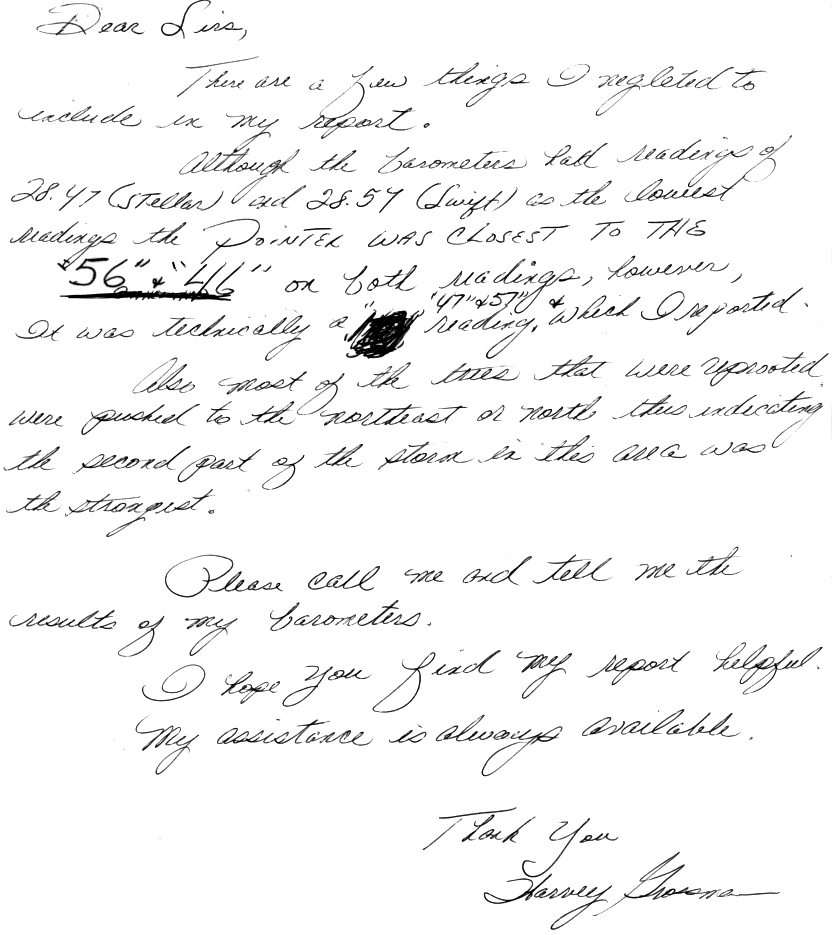 Dear Sirs,
There are a few things I negleted to
include in my report.
Although the barometers had readings of
28.47 (Stellar) and 28.57 (Swift) as the lowest
readings the POINTER WAS CLOSEST TO THE
"56" & "46" on both readings, however,
It was technically a "47" & 57" reading, & which I reported.
Also most of the trees that were uprooted
were pushed to the northeast or north thus indicating
the second part of the storm in this area was
the strongest.
Please call me and tell me the
results of my barometers.
I hope you find my report helpful.
My assistance is always available.
Thank You
Harvey